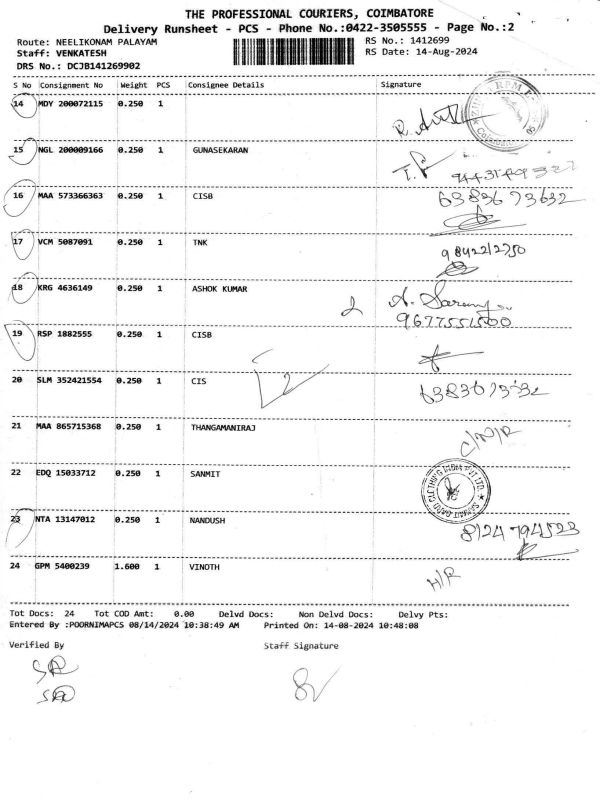 THE PROFESSIONAL COURIERS, COIMBATORE
Delivery Runsheet - PCS - Phone No.:0422-3505555 - Page No.:2
Route: NEELIKONAM PALAYAM RS No.: 1412699
Staff: VENKATESH RS Date: 14-Aug-2024
DRS No.: DCJB141269902
S No Consignment No Weight PCS Consignee Details Signature
14 MDY 200072115 0.250 1
15 NGL 200009166 0.250 1 GUNASEKARAN
16 MAA 573366363 0.250 1 CISB 6383673632
17 VCM 5087091 0.250 1 TNK 9842212750
18 KRG 4636149 0.250 1 ASHOK KUMAR
9677551500
19 RSP 1882555 0.250 1 CISB
20 SLM 352421554 0.250 1 CIS
21 MAA 865715368 0.250 1 THANGAMANIRAJ C/N/R
22 EDQ 15033712 0.250 1 SANMIT
23 NTA 13147012 0.250 1 NANDUSH 8124794523
24 GPM 5400239 1.600 1 VINOTH H/R
Tot Docs: 24 Tot COD Amt: 0.00 Delvd Docs: Non Delvd Docs: Delvy Pts:
Entered By :POORNIMAPCS 08/14/2024 10:38:49 AM Printed On: 14-08-2024 10:48:08
Verified By Staff Signature